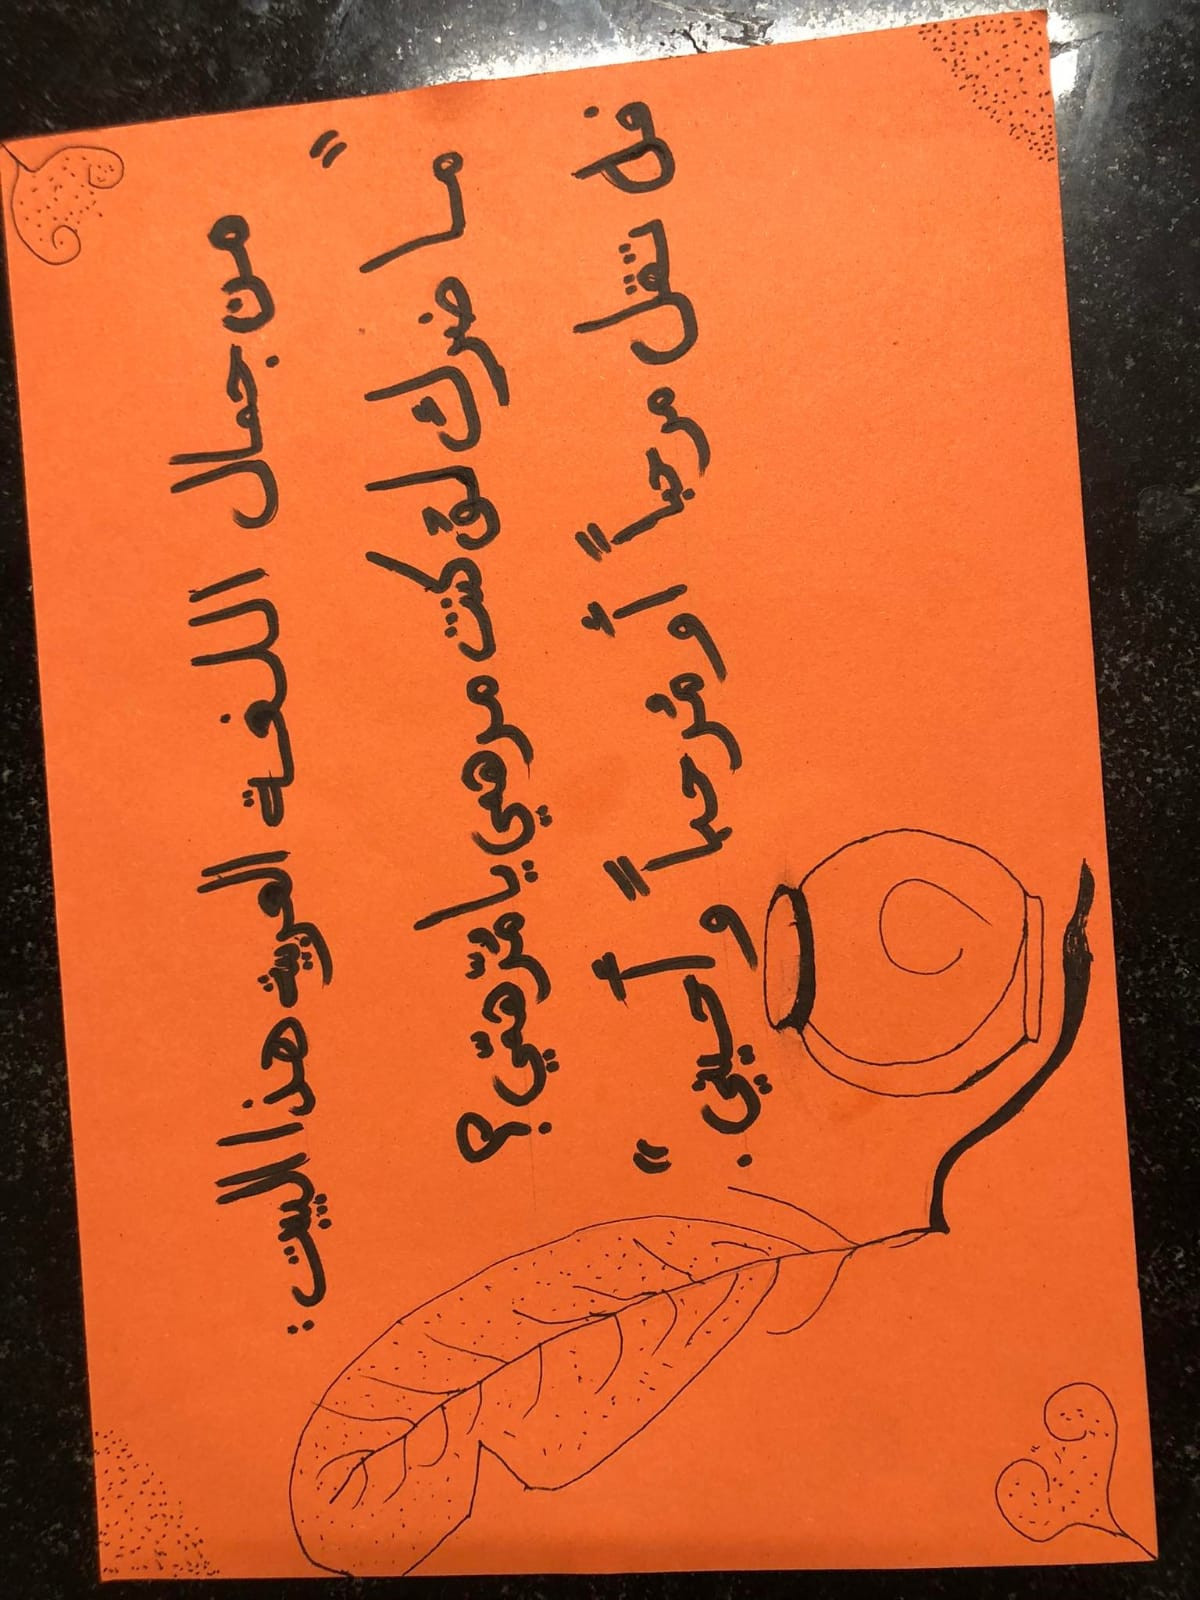 من جمال اللغة العربية هذا البيت:
" ما ضرك لوْ كنت مرهمي يا مُرّ همّي؟
فل تقل مرحباً أو مُر حباً و أحيني. "